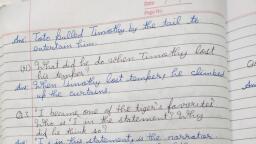 Date
Page No.
Ans. Toto pulled Timothy by the tail to
entertain him.
What did he do when Timothy lost
his temper?
Ans. When Timothy lost temper, he climbed
up the curtains.
Q.3 "I became one of the tiger's favourites"
Who is 'I' in the statement? Why
did he think so?
Ans. 'I' in this statement is the narrator.